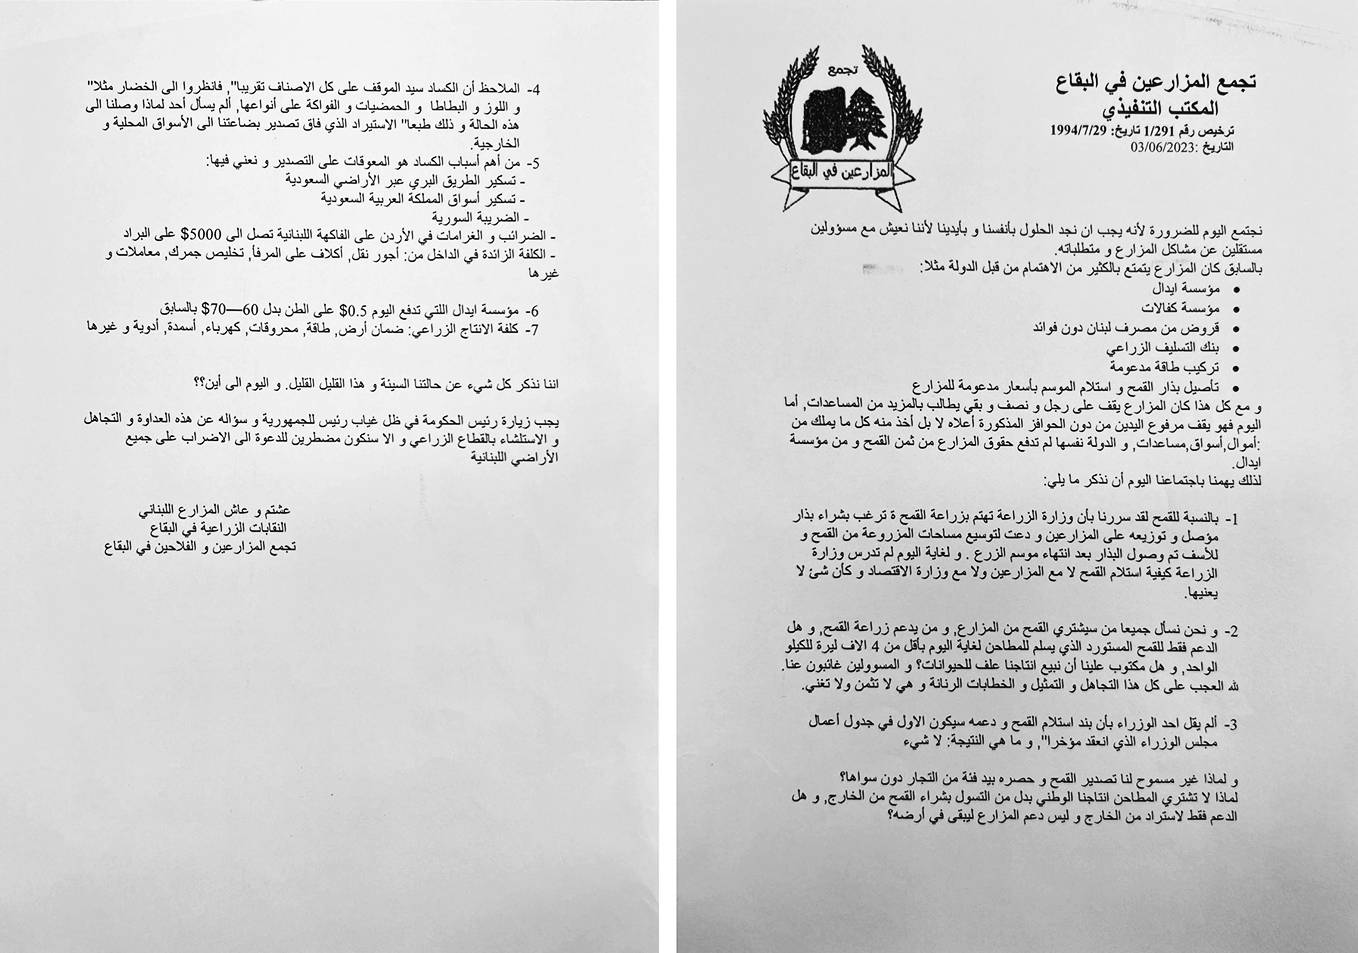 تجمع المزارعين في البقاع
المكتب التنفيذي
ترخيص رقم 1/291 تاريخ: 1994/7/29
التاريخ :03/06/2023
تجمع
المزارعين في البقاع
نجتمع اليوم للضرورة لأنه يجب ان نجد الحلول بأنفسنا و بأيدينا لأننا نعيش مع مسؤولين
مستقلين عن مشاكل المزارع و متطلباته.
بالسابق كان المزارع يتمتع بالكثير من الاهتمام من قبل الدولة مثلا:
• مؤسسة ايدال
• مؤسسة كفالات
• قروض من مصرف لبنان دون فوائد
• بنك التسليف الزراعي
• تركيب طاقة مدعومة
• تأصيل بذار القمح و استلام الموسم بأسعار مدعومة للمزارع
و مع كل هذا كان المزارع يقف على رجل و نصف و بقي يطالب بالمزيد من المساعدات, أما
اليوم فهو يقف مرفوع اليدين من دون الحوافز المذكورة أعلاه لا بل أخذ منه كل ما يملك من
:أموال,أسواق,مساعدات, و الدولة نفسها لم تدفع حقوق المزارع من ثمن القمح و من مؤسسة
ايدال.
لذلك يهمنا باجتماعنا اليوم أن نذكر ما يلي:
1- بالنسبة للقمح لقد سررنا بأن وزارة الزراعة تهتم بزراعة القمح ة ترغب بشراء بذار
مؤصل و توزيعه على المزارعين و دعت لتوسيع مساحات المزروعة من القمح و
للأسف تم وصول البذار بعد انتهاء موسم الزرع . و لغاية اليوم لم تدرس وزارة
الزراعة كيفية استلام القمح لا مع المزارعين ولا مع وزارة الاقتصاد و كأن شئ لا
يعنيها.
2- و نحن نسأل جميعا من سيشتري القمح من المزارع, و من يدعم زراعة القمح, و هل
الدعم فقط للقمح المستورد الذي يسلم للمطاحن لغاية اليوم بأقل من 4 الاف ليرة للكيلو
الواحد, و هل مكتوب علينا أن نبيع انتاجنا علف للحيوانات؟ و المسوولين غائبون عنا.
لله العجب على كل هذا التجاهل و التمثيل و الخطابات الرنانة و هي لا تثمن ولا تغني.
3- ألم يقل احد الوزراء بأن بند استلام القمح و دعمه سيكون الاول في جدول أعمال
مجلس الوزراء الذي انعقد مؤخرا", و ما هي النتيجة: لا شيء
و لماذا غير مسموح لنا تصدير القمح و حصره بيد فئة من التجار دون سواها؟
لماذا لا تشتري المطاحن انتاجنا الوطني بدل من التسول بشراء القمح من الخارج, و هل
الدعم فقط لاستراد من الخارج و ليس دعم المزارع ليبقى في أرضه؟
4- الملاحظ أن الكساد سيد الموقف على كل الاصناف تقريبا", فانظروا الى الخضار مثلا"
و اللوز و البطاطا و الحمضيات و الفواكة على أنواعها, ألم يسأل أحد لماذا وصلنا الى
هذه الحالة و ذلك طبعا" الاستيراد الذي فاق تصدير بضاعتنا الى الأسواق المحلية و
الخارجية.
5- من أهم أسباب الكساد هو المعوقات على التصدير و نعني فيها:
- تسكير الطريق البري عبر الأراضي السعودية
- تسكير أسواق المملكة العربية السعودية
- الضريبة السورية
- الضرائب و الغرامات في الأردن على الفاكهة اللبنانية تصل الى 5000$ على البراد
- الكلفة الزائدة في الداخل من: أجور نقل, أكلاف على المرفأ, تخليص جمرك, معاملات و
غيرها
6- مؤسسة ايدال اللتي تدفع اليوم 0.5$ على الطن بدل 60—70$ بالسابق
7- كلفة الانتاج الزراعي: ضمان أرض, طاقة, محروقات, كهرباء, أسمدة, أدوية و غيرها
اننا نذكر كل شيء عن حالتنا السيئة و هذا القليل القليل. و اليوم الى أين؟؟
يجب زيارة رئيس الحكومة في ظل غياب رئيس للجمهورية و سؤاله عن هذه العداوة و التجاهل
و الاستلشاء بالقطاع الزراعي و الا سنكون مضطرين للدعوة الى الاضراب على جميع
الأراضي اللبنانية
عشتم و عاش المزارع اللبناني
النقابات الزراعية في البقاع
تجمع المزارعين و الفلاحين في البقاع